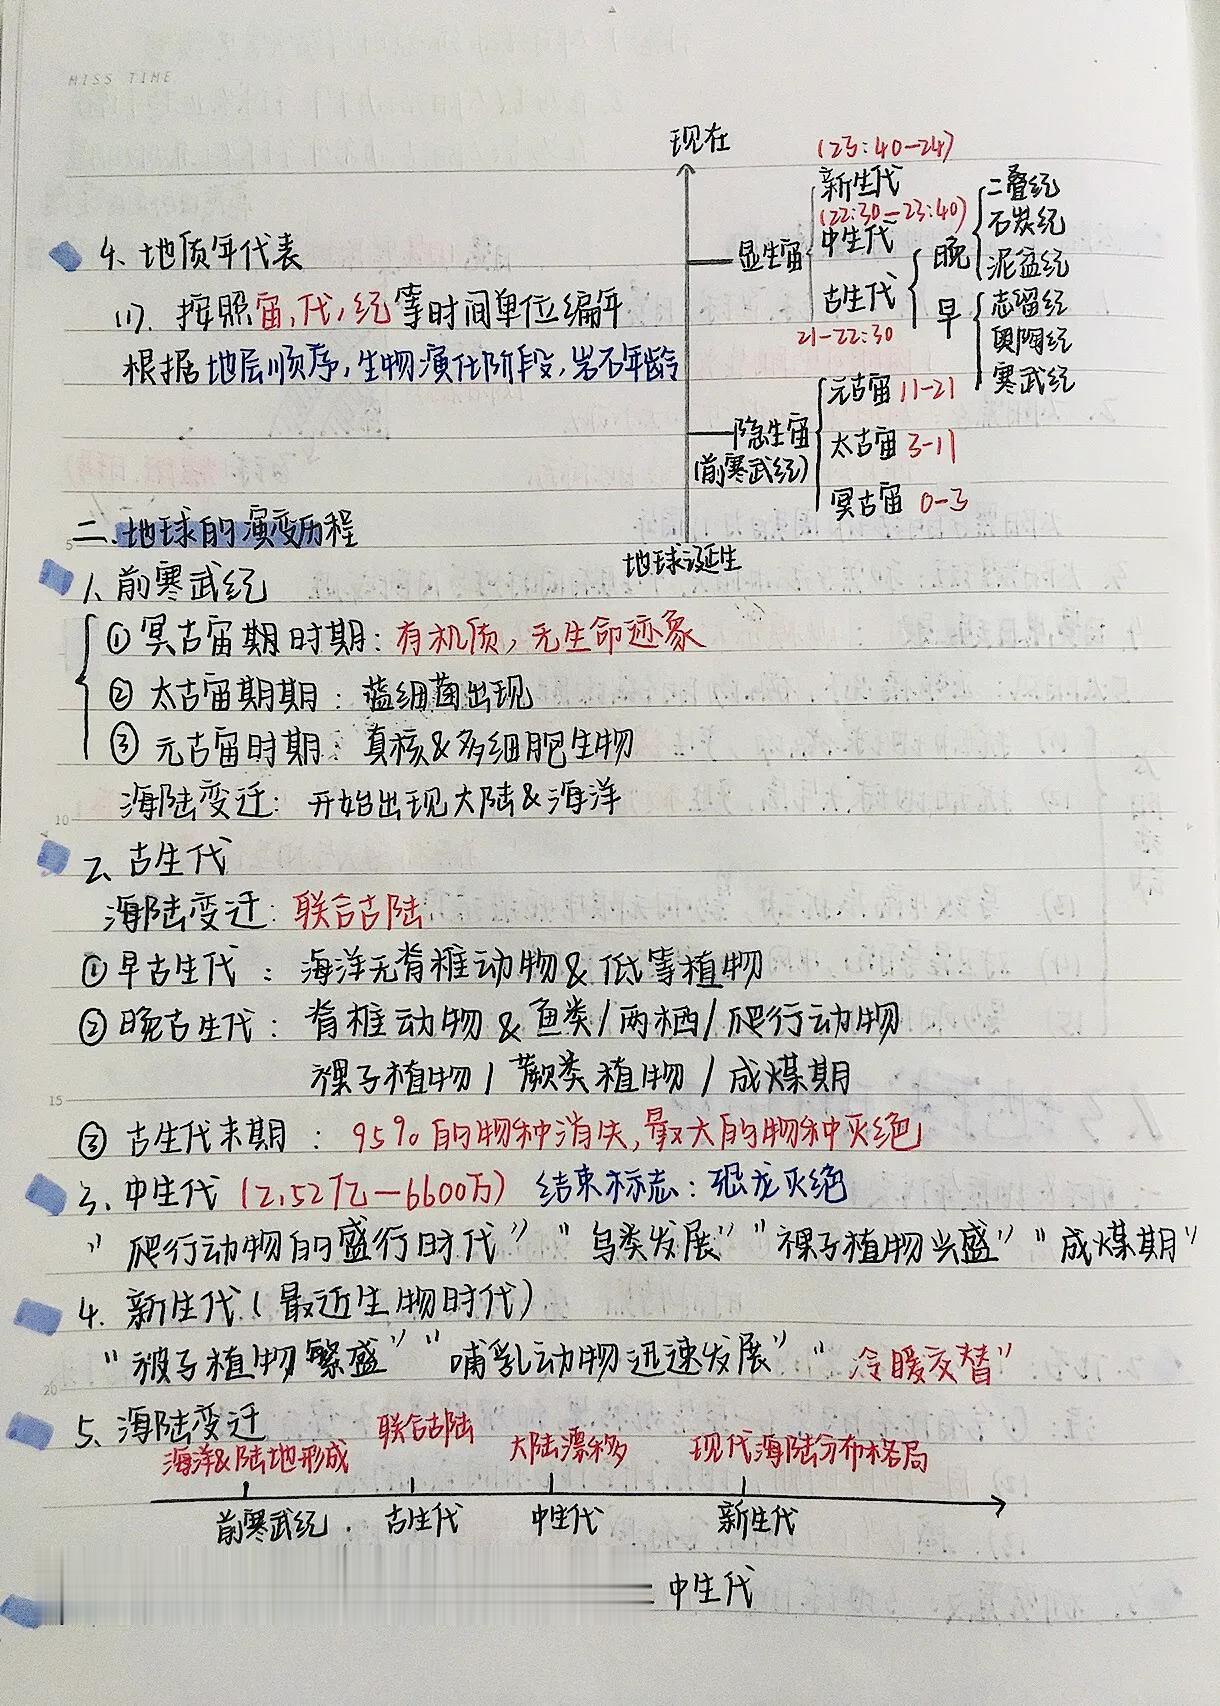 MISS TIME
现在
(23:40-24)
新生代
(22:30-23:40)
显生宙
中生代
古生代
21-22:30
晚
二叠纪
石炭纪
泥盆纪
早
志留纪
奥陶纪
寒武纪
隐生宙
(前寒武纪)
元古宙 11-21
太古宙 3-11
冥古宙 0-3
地球诞生
4. 地质年代表
(1). 按照宙,代,纪等时间单位编年
根据地层顺序,生物演化阶段,岩石年龄
二. 地球的演变历程
1. 前寒武纪
① 冥古宙期时期: 有机质, 无生命迹象
② 太古宙期期: 蓝细菌出现
③ 元古宙时期: 真核&多细胞生物
海陆变迁: 开始出现大陆&海洋
2. 古生代
海陆变迁: 联合古陆
① 早古生代: 海洋无脊椎动物&低等植物
② 晚古生代: 脊椎动物&鱼类/两栖/爬行动物
裸子植物/蕨类植物/成煤期
③ 古生代末期: 95%的物种消失,最大的物种灭绝
3. 中生代 (2.52亿-6600万) 结束标志: 恐龙灭绝
"爬行动物的盛行时代" "鸟类发展" "裸子植物兴盛" "成煤期"
4. 新生代(最近生物时代)
"被子植物繁盛" "哺乳动物迅速发展" "冷暖交替"
5. 海陆变迁
海洋&陆地形成 联合古陆 大陆漂移 现代海陆分布格局
前寒武纪. 古生代 中生代 新生代
中生代
5
10
15
20